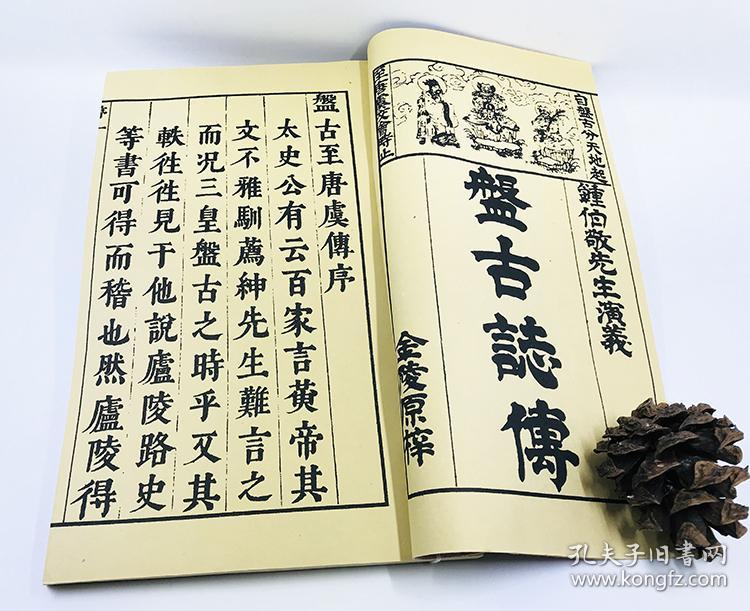 自盤古分天地起
至唐虞交會時止
鍾伯敬先生演義
盤古誌傳
金陵原梓
盤古至唐虞傳序
太史公有云百家言黃帝其
文不雅馴薦紳先生難言之
而况三皇盤古之時乎又其
軼徃徃見于他說廬陵路史
等書可得而稽也然廬陵得
孔夫子旧書网
www.kongfz.com